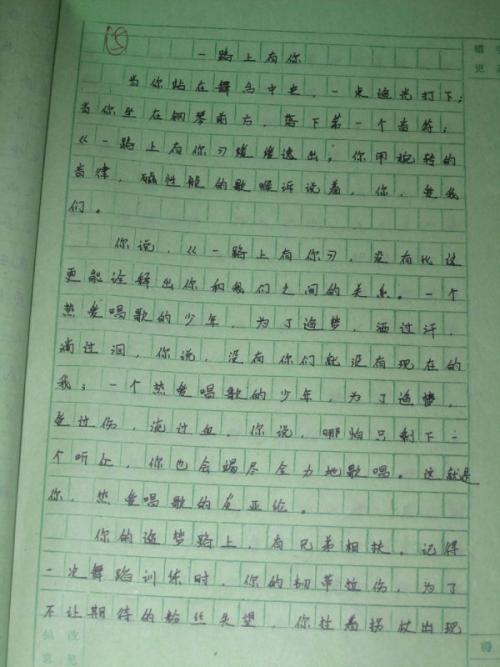 15
一路上有你
当你站在舞台中央，一束追光打下；
当你坐在钢琴前方，落下第一个音符；
《一路上有你》缓缓逸出。你用婉转的
音律，磁性般的歌喉诉说着，你，爱我
们。
你说，《一路上有你》，没有比这
更能诠解出你和我们之间的关系。一个
热爱唱歌的少年，为了追梦，洒过汗，
淌过泪，你说，没有你们就没有现在的
我；一个热爱唱歌的少年，为了追梦，
受过伤，流过血，你说，哪怕只剩下一
个听众，你也会竭尽全力地歌唱。这就是
你，热爱唱歌的炎亚纶。
你的追梦路上，有兄弟相扶。记得
一次舞蹈训练时，你的韧带拉伤，为了
不让期待的粉丝失望，你拄着拐杖出现
错
更
批
改
意
见
得